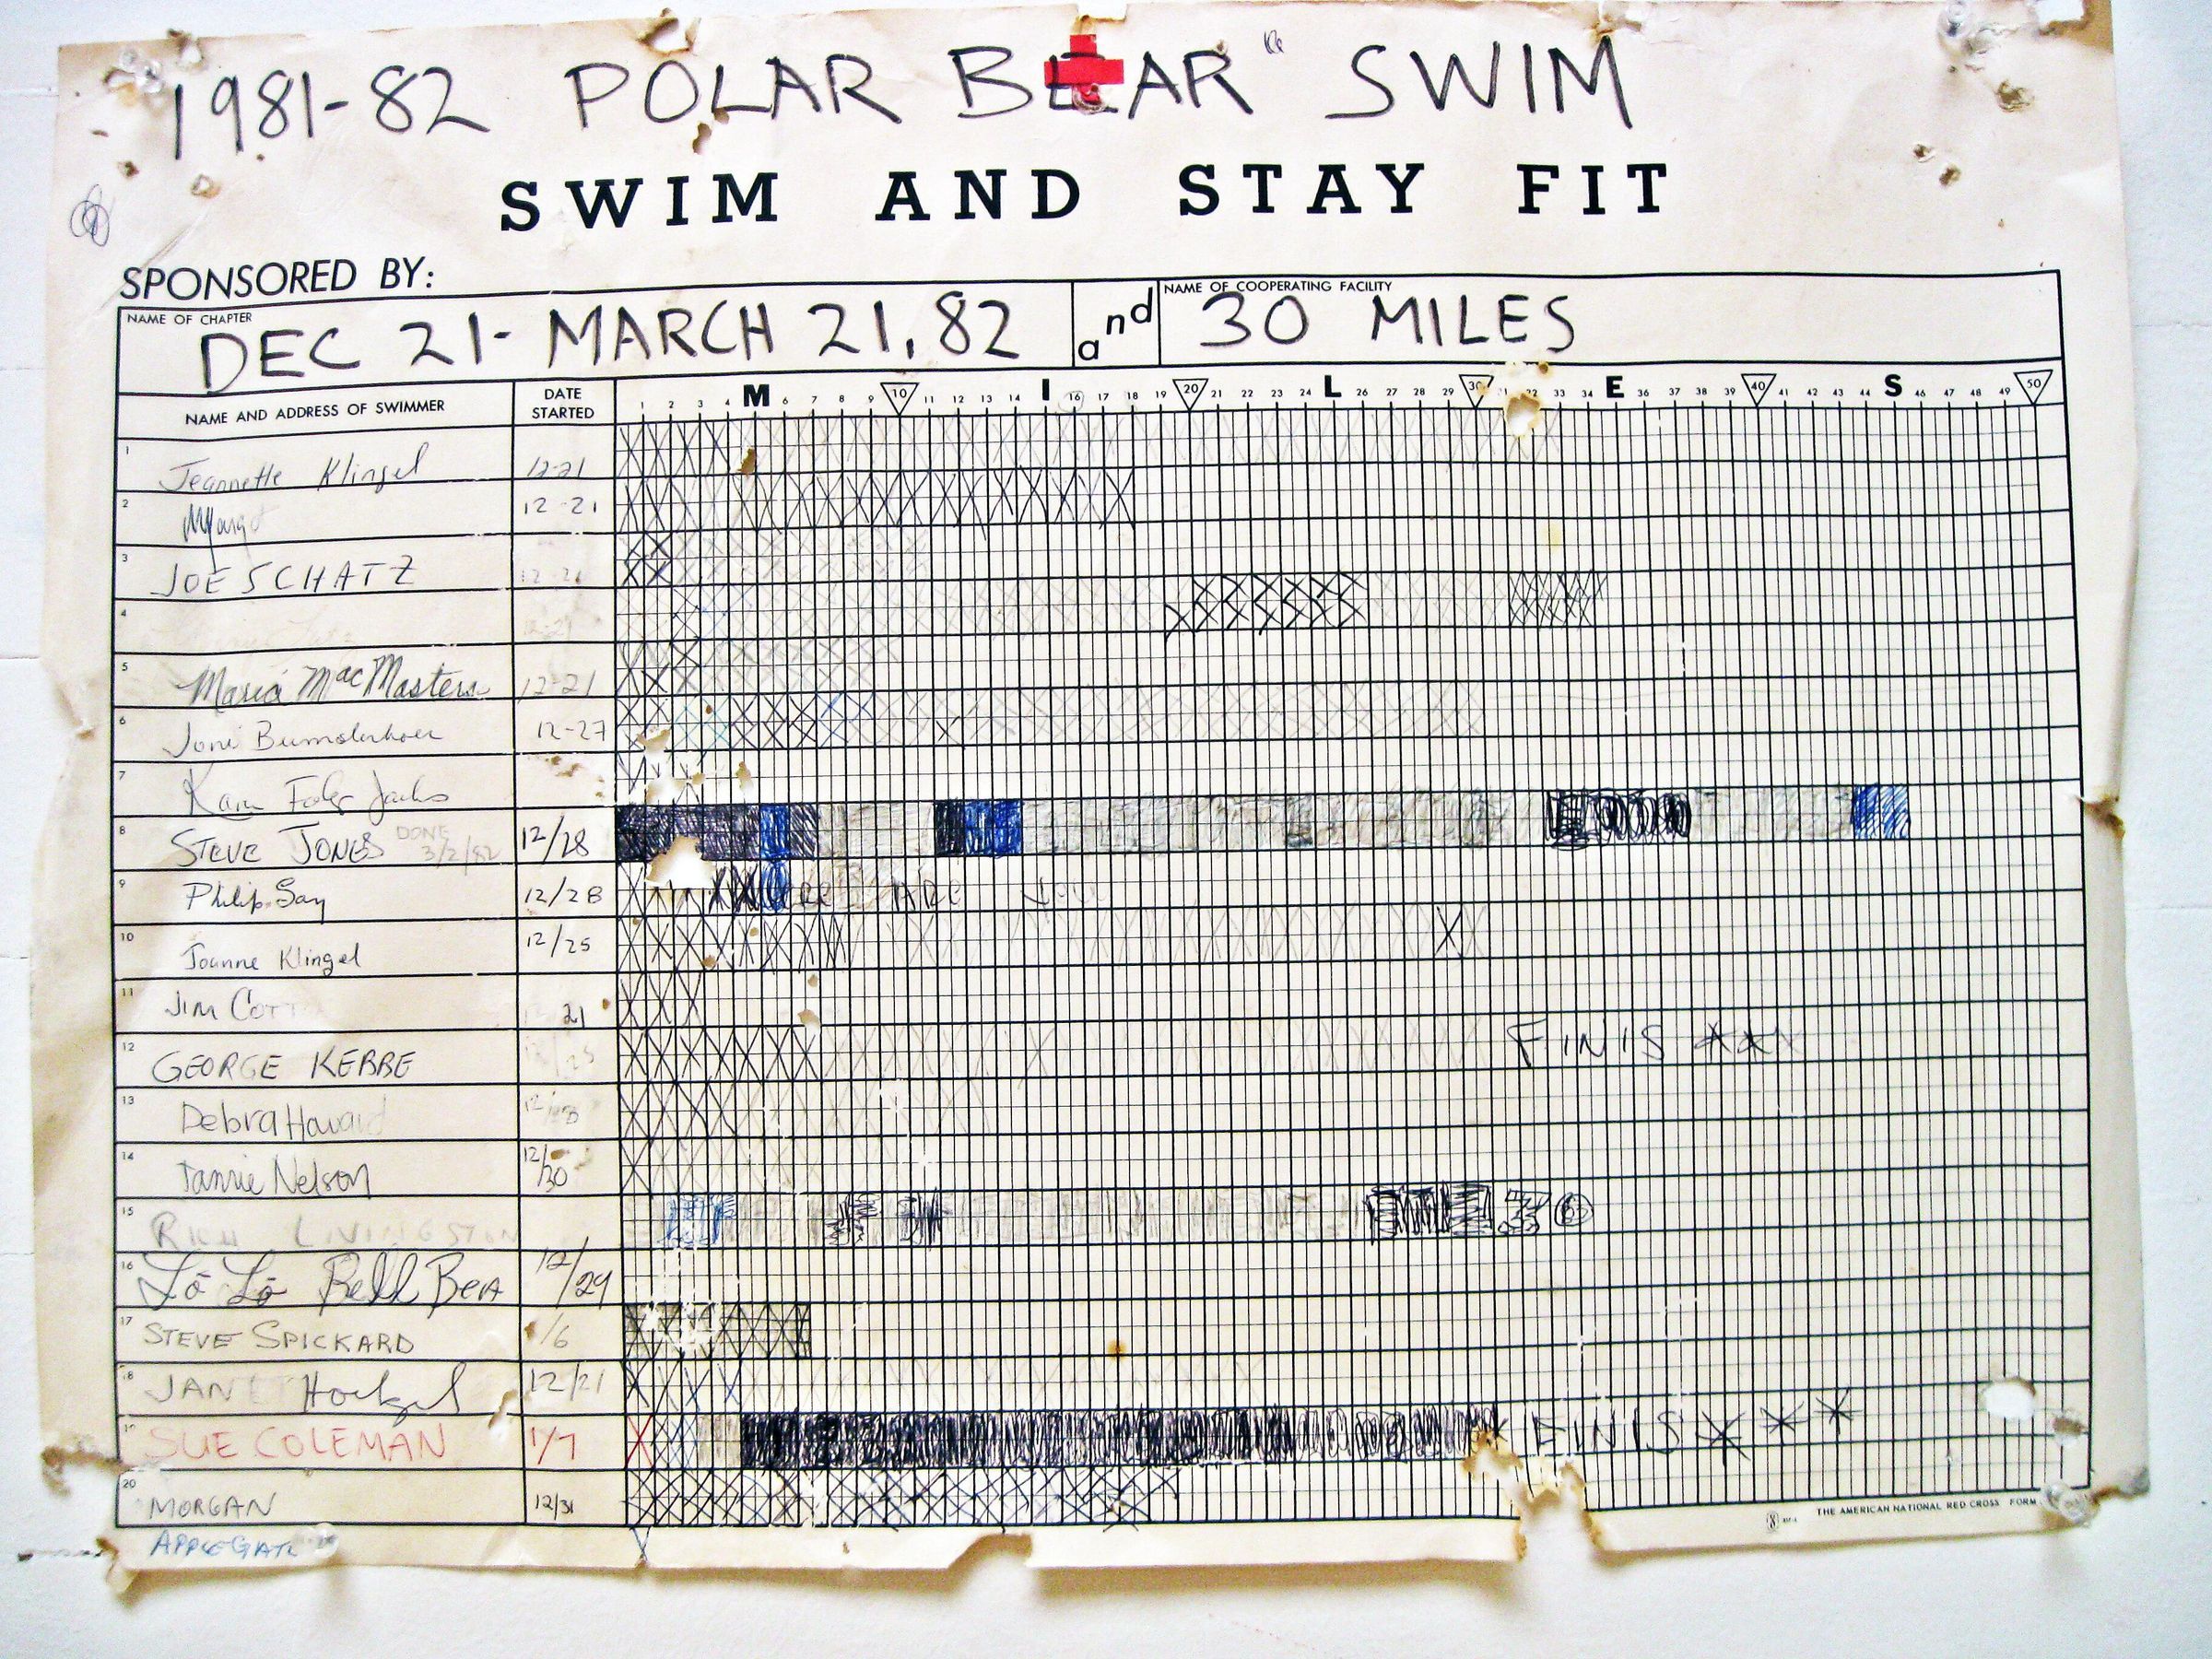 1981-82 POLAR BEAR" SWIM
SWIM AND STAY FIT
SPONSORED BY:
NAME OF CHAPTER
DEC 21- MARCH 21, 82
and
NAME OF COOPERATING FACILITY
30 MILES
NAME AND ADDRESS OF SWIMMER DATE STARTED
1 2 3 M 6 7 8 9 10 11 12 13 14 I 16 17 18 19 20 21 22 23 24 L 26 27 28 29 30 32 33 34 E 36 37 38 39 40 41 42 43 44 S 46 47 48 49 50
1 Jeannette Klingel 12-21
2 12-21
3 JOE SCHATZ 12-21
4
5 Maria MacMasters 12-21
6 Joni 12-27
7
8 STEVE JONES DONE 3/2/82 12/28
9 Philip Say 12/28
10 Joanne Klingel 12/25
11 JIM 21
12 GEORGE KEBBE 25 FINIS
13 Debra
14 Tannie Nelson 12/30
15 RICH LIVINGSTON
16 Lō Lō Bell Bea 12/29
17 STEVE SPICKARD /6
18 12/21
19 SUE COLEMAN 1/7 FINIS
20 MORGAN 12/31
APPLEGATE
THE AMERICAN NATIONAL RED CROSS FORM